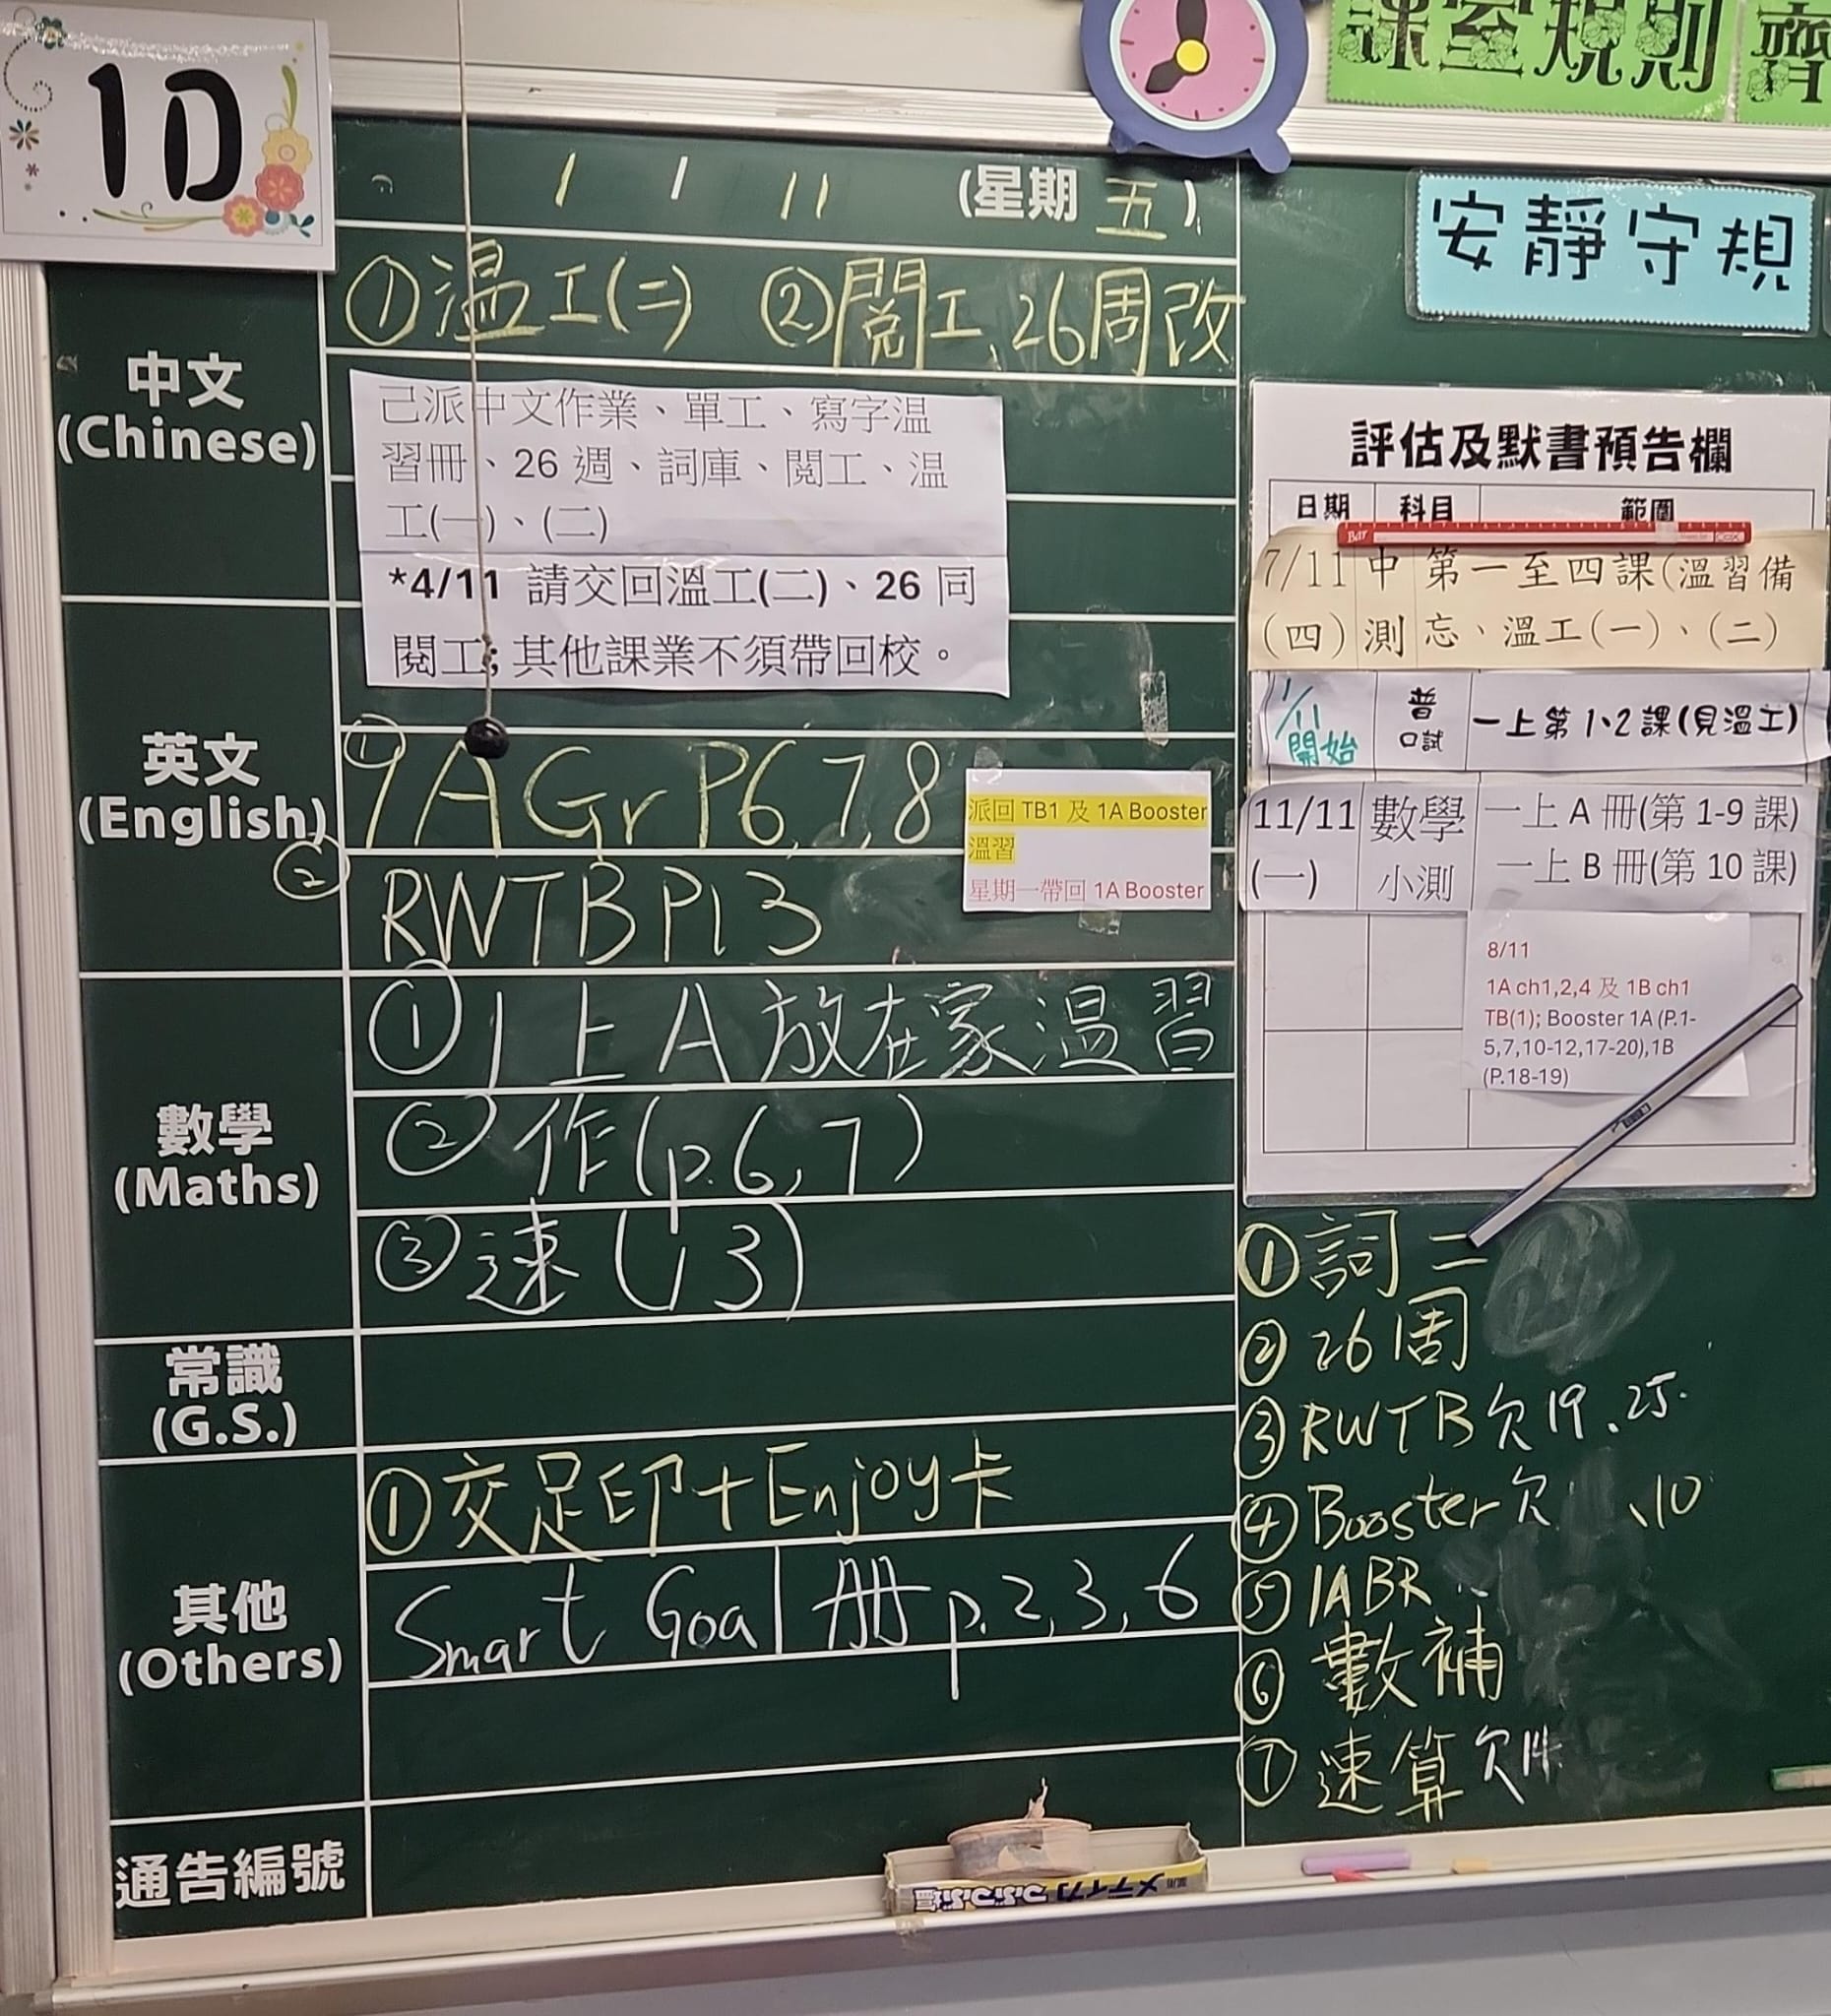 1D
課室規則
齊
1 / 11 (星期 五)
安靜守規
中文
(Chinese)
①温工(二) ②閱工、26周改
己派中文作業、單工、寫字温
習冊、26 週、詞庫、閱工、温
工(一)、(二)
*4/11 請交回溫工(二)、26 同
閱工; 其他課業不須帶回校。
英文
(English)
① 9A Gr P6,7,8
② RWTB P13
派回 TB1 及 1A Booster
溫習
星期一帶回 1A Booster
數學
(Maths)
① 1上A放在家温習
② 作(p.6,7)
③ 速(13)
常識
(G.S.)
其他
(Others)
①交足印+Enjoy卡
Smart Goal 冊 p.2,3,6
通告編號
評估及默書預告欄
日期 科目 範圍
7/11 中 第一至四課(溫習備
(四) 測 忘、溫工(一)、(二)
1/11 開始 普 口試 一上第1、2課(見溫工)
11/11 數學 一上 A 冊(第 1-9 課)
(一) 小測 一上 B 冊(第 10 課)
8/11
1A ch1,2,4 及 1B ch1
TB(1); Booster 1A (P.1-
5,7,10-12,17-20),1B
(P.18-19)
①詞二
②26周
③RWTB欠19、25
④Booster欠 、10
⑤1ABR
⑥數補
⑦速算欠14